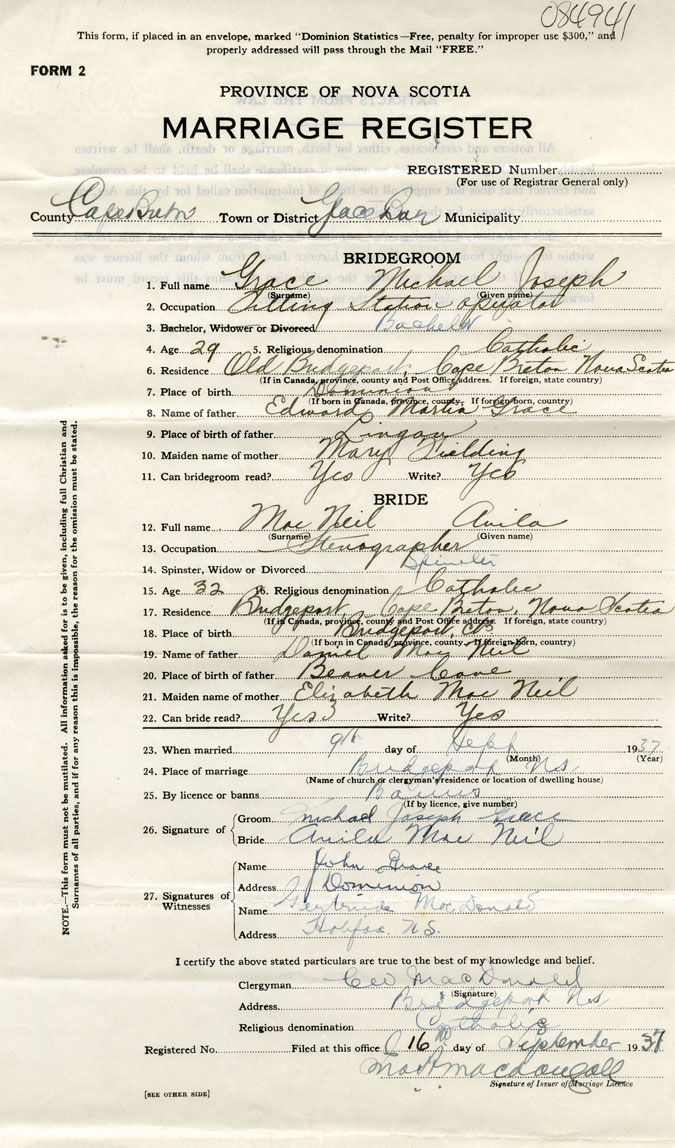 084941
This form, if placed in an envelope, marked "Dominion Statistics—Free, penalty for improper use $300," and
properly addressed will pass through the Mail "FREE."
FORM 2
PROVINCE OF NOVA SCOTIA
MARRIAGE REGISTER
REGISTERED Number
(For use of Registrar General only)
County Cape Breton Town or District Glace Bay Municipality
BRIDEGROOM
1. Full name Grace Michael Joseph
(Surname) (Given name)
2. Occupation Station operator
3. Bachelor, Widower or Divorced Bachelor
4. Age 29 5. Religious denomination Catholic
6. Residence Old Bridgeport, Cape Breton Nova Scotia
(If in Canada, province, county and Post Office address. If foreign, state country)
7. Place of birth Dominion
(If born in Canada, province, county. If foreign born, country)
8. Name of father Edward Martin Grace
9. Place of birth of father Lingan
10. Maiden name of mother Mary Fielding
11. Can bridegroom read? Yes Write? Yes
BRIDE
12. Full name Mac Neil Avila
(Surname) (Given name)
13. Occupation Stenographer
14. Spinster, Widow or Divorced Spinster
15. Age 32 16. Religious denomination Catholic
17. Residence Bridgeport, Cape Breton, Nova Scotia
(If in Canada, province, county and Post Office address. If foreign, state country)
18. Place of birth Bridgeport, C.B.
(If born in Canada, province, county. If foreign born, country)
19. Name of father Daniel Mac Neil
20. Place of birth of father Beaver Cove
21. Maiden name of mother Elizabeth Mac Neil
22. Can bride read? Yes Write? Yes
23. When married 9th day of Sept 1937
(Month) (Year)
24. Place of marriage Bridgeport N.S.
(Name of church or clergyman's residence or location of dwelling house)
25. By licence or banns Banns
(If by licence, give number)
26. Signature of
Groom Michael Joseph Grace
Bride Avila Mac Neil
27. Signatures of Witnesses
Name John Grace
Address Dominion
Name Gertrude MacDonald
Address Halifax N.S.
I certify the above stated particulars are true to the best of my knowledge and belief.
Clergyman MacDonald
(Signature)
Address Bridgeport N.S.
Religious denomination Catholic
Registered No. Filed at this office 16th day of September 1937
macdougall
Signature of Issuer of Marriage Licence
[SEE OTHER SIDE]
NOTE.—This form must not be mutilated. All information asked for is to be given, including full Christian and
Surnames of all parties, and if for any reason this is impossible, the reason for the omission must be stated.